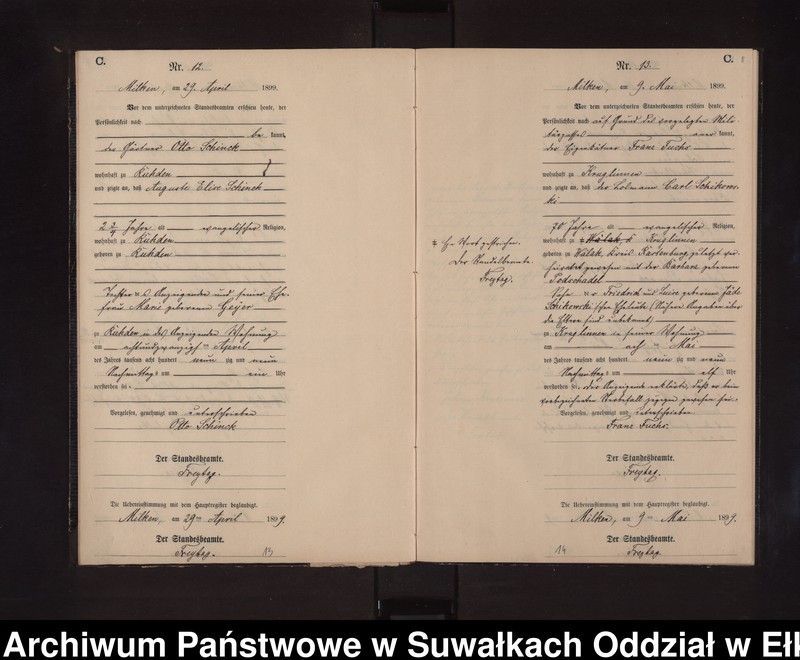 C.
Nr. 12.
Milken, am 29. April 1899.
Vor dem unterzeichneten Standesbeamten erschien heute, der
Persönlichkeit nach
be kannt,
der Gärtner Otto Schinck
wohnhaft zu Rühden
und zeigte an, daß Auguste Elise Schinck
2 3/4 Jahre alt evangelischer Religion,
wohnhaft zu Rühden
geboren zu Rühden
Tochter des Anzeigenden und seiner Ehe-
frau Marie geborenen Geyer
zu Rühden in des Anzeigenden Wohnung
am achtundzwanzigsten April
des Jahres tausend acht hundert neunzig und neun
Nachmittags um ein Uhr
verstorben sei.
Vorgelesen, genehmigt und unterschrieben
Otto Schinck
Der Standesbeamte.
Freytag.
Die Uebereinstimmung mit dem Hauptregister beglaubigt.
Milken, am 29ten April 1899.
Der Standesbeamte.
Freytag.
13
C.
Nr. 13.
Milken, am 9. Mai 1899.
Vor dem unterzeichneten Standesbeamten erschien heute, der
Persönlichkeit nach auf Grund des vorgelegten Mili-
tärpasses aner kannt,
der Eigenkätner Franz Fuchs
wohnhaft zu Kruglinnen
und zeigte an, daß der Losmann Carl Schikows-
ki
70 Jahre alt evangelischer Religion,
wohnhaft zu Kruglinnen
geboren zu Wålak, Kreis Rastenburg, zuletzt ver-
heirathet gewesen mit der Barbara geborenen
Podschadel
Sohn der Friedrich und Luise geborenen
Schikowski'schen Eheleute (Nähere Angaben über
die Eltern sind unbekannt)
zu Kruglinnen in seiner Wohnung
am acht ten Mai
des Jahres tausend acht hundert neunzig und neun
Nachmittags um elf Uhr
verstorben sei, der Anzeigende erklärte, daß er beim
vorbezeichneten Sterbefall zugegen gewesen sei.
Vorgelesen, genehmigt und unterschrieben
Franz Fuchs.
Ein Wort gestrichen.
Der Standesbeamte.
Freytag.
Der Standesbeamte.
Freytag.
Die Uebereinstimmung mit dem Hauptregister beglaubigt.
Milken, am 9ten Mai 1899.
Der Standesbeamte.
Freytag.
14
Archiwum Państwowe w Suwałkach Oddział w Ełk